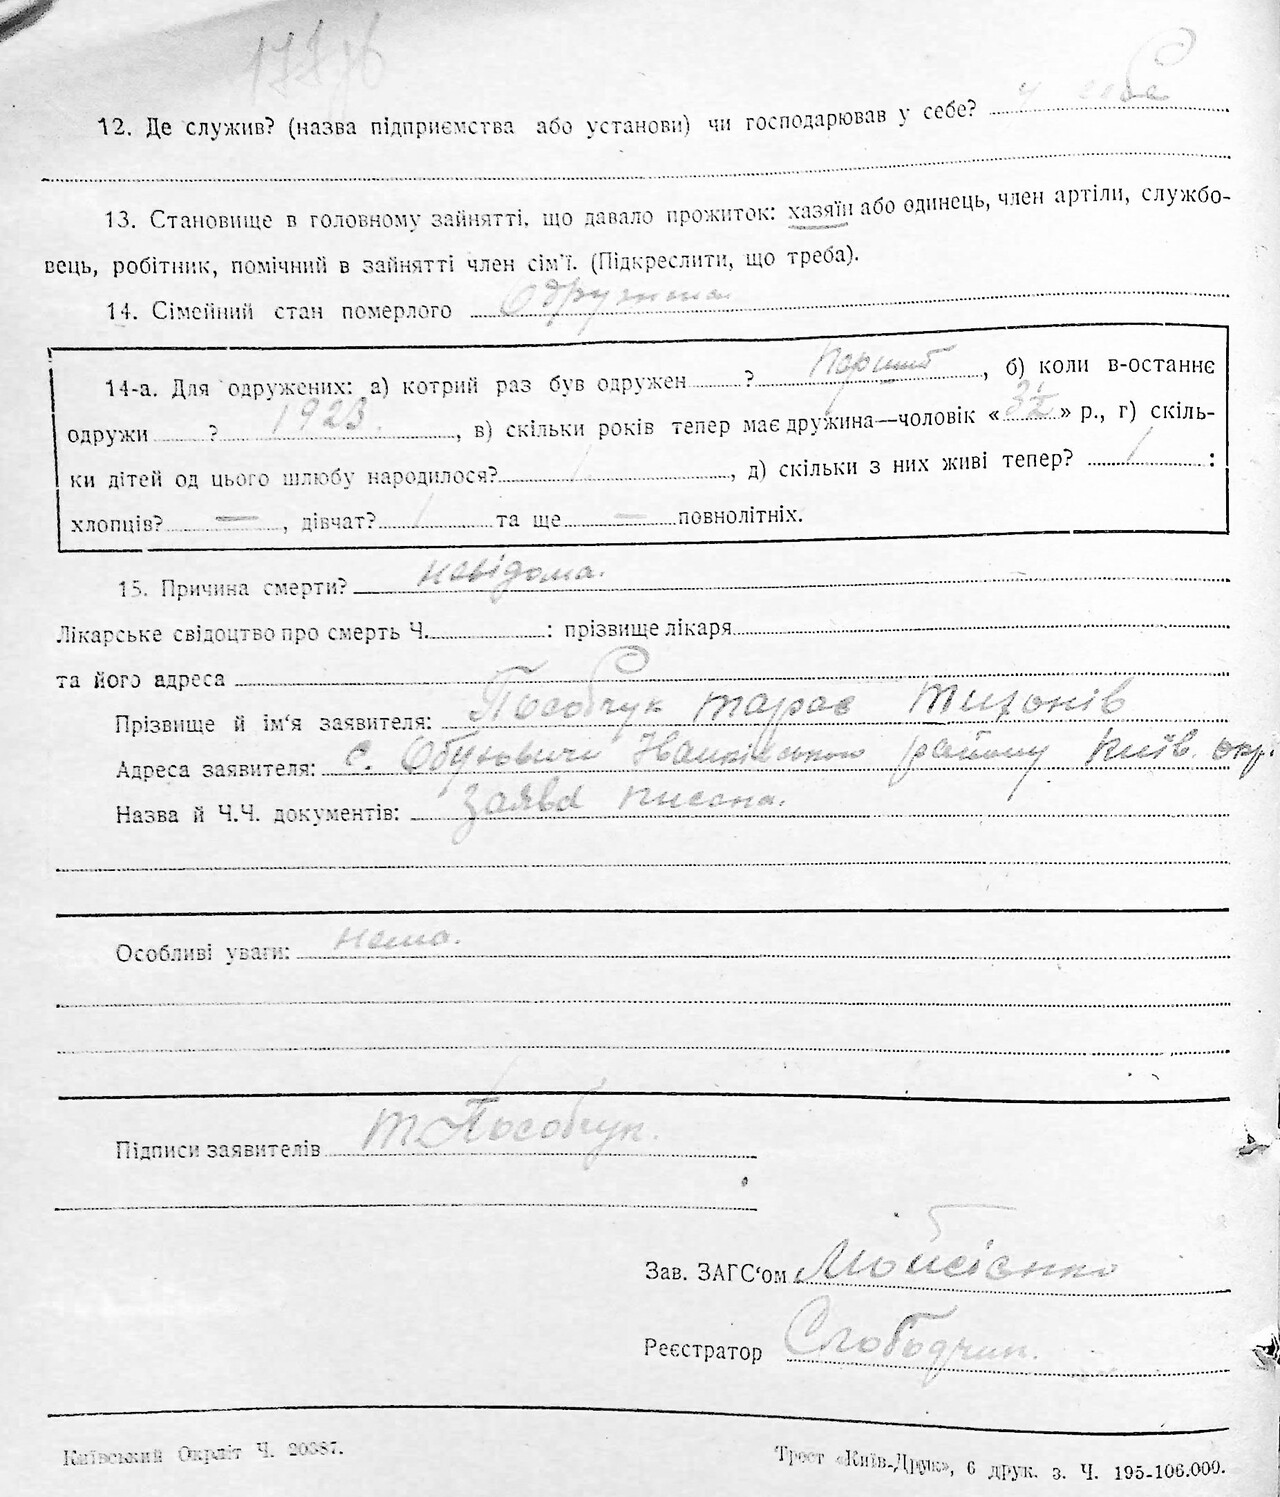 177
12. Де служив? (назва підприємства або установи) чи господарював у себе? у себе
13. Становище в головному зайнятті, що давало прожиток: хазяїн або одинець, член артіли, службо-
вець, робітник, помічний в зайнятті член сім'ї. (Підкреслити, що треба).
14. Сімейний стан померлого одружена
14-а. Для одружених: а) котрий раз був одружен ? перший, б) коли в-останнє
одружи ? 1923., в) скільки років тепер має дружина—чоловік « » р., г) скіль-
ки дітей од цього шлюбу народилося? 1, д) скільки з них живі тепер? 1 :
хлопців? —, дівчат? 1 та ще — повнолітніх.
15. Причина смерти? невідома.
Лікарське свідоцтво про смерть Ч. : прізвище лікаря
та його адреса
Прізвище й ім'я заявителя: Пособчук Тарас Тихонів
Адреса заявителя: с. Обуховичи району Київ. окр.
Назва й Ч.Ч. документів: заява писана.
Особливі уваги: нема.
Підписи заявителів Т. Пособчук.
Зав. ЗАГС'ом Мойсієнко
Реєстратор Слободчик.
Київський Окрліт Ч. 20387.
Трест «Київ-Друк», 6 друк. з. Ч. 195-106.000.